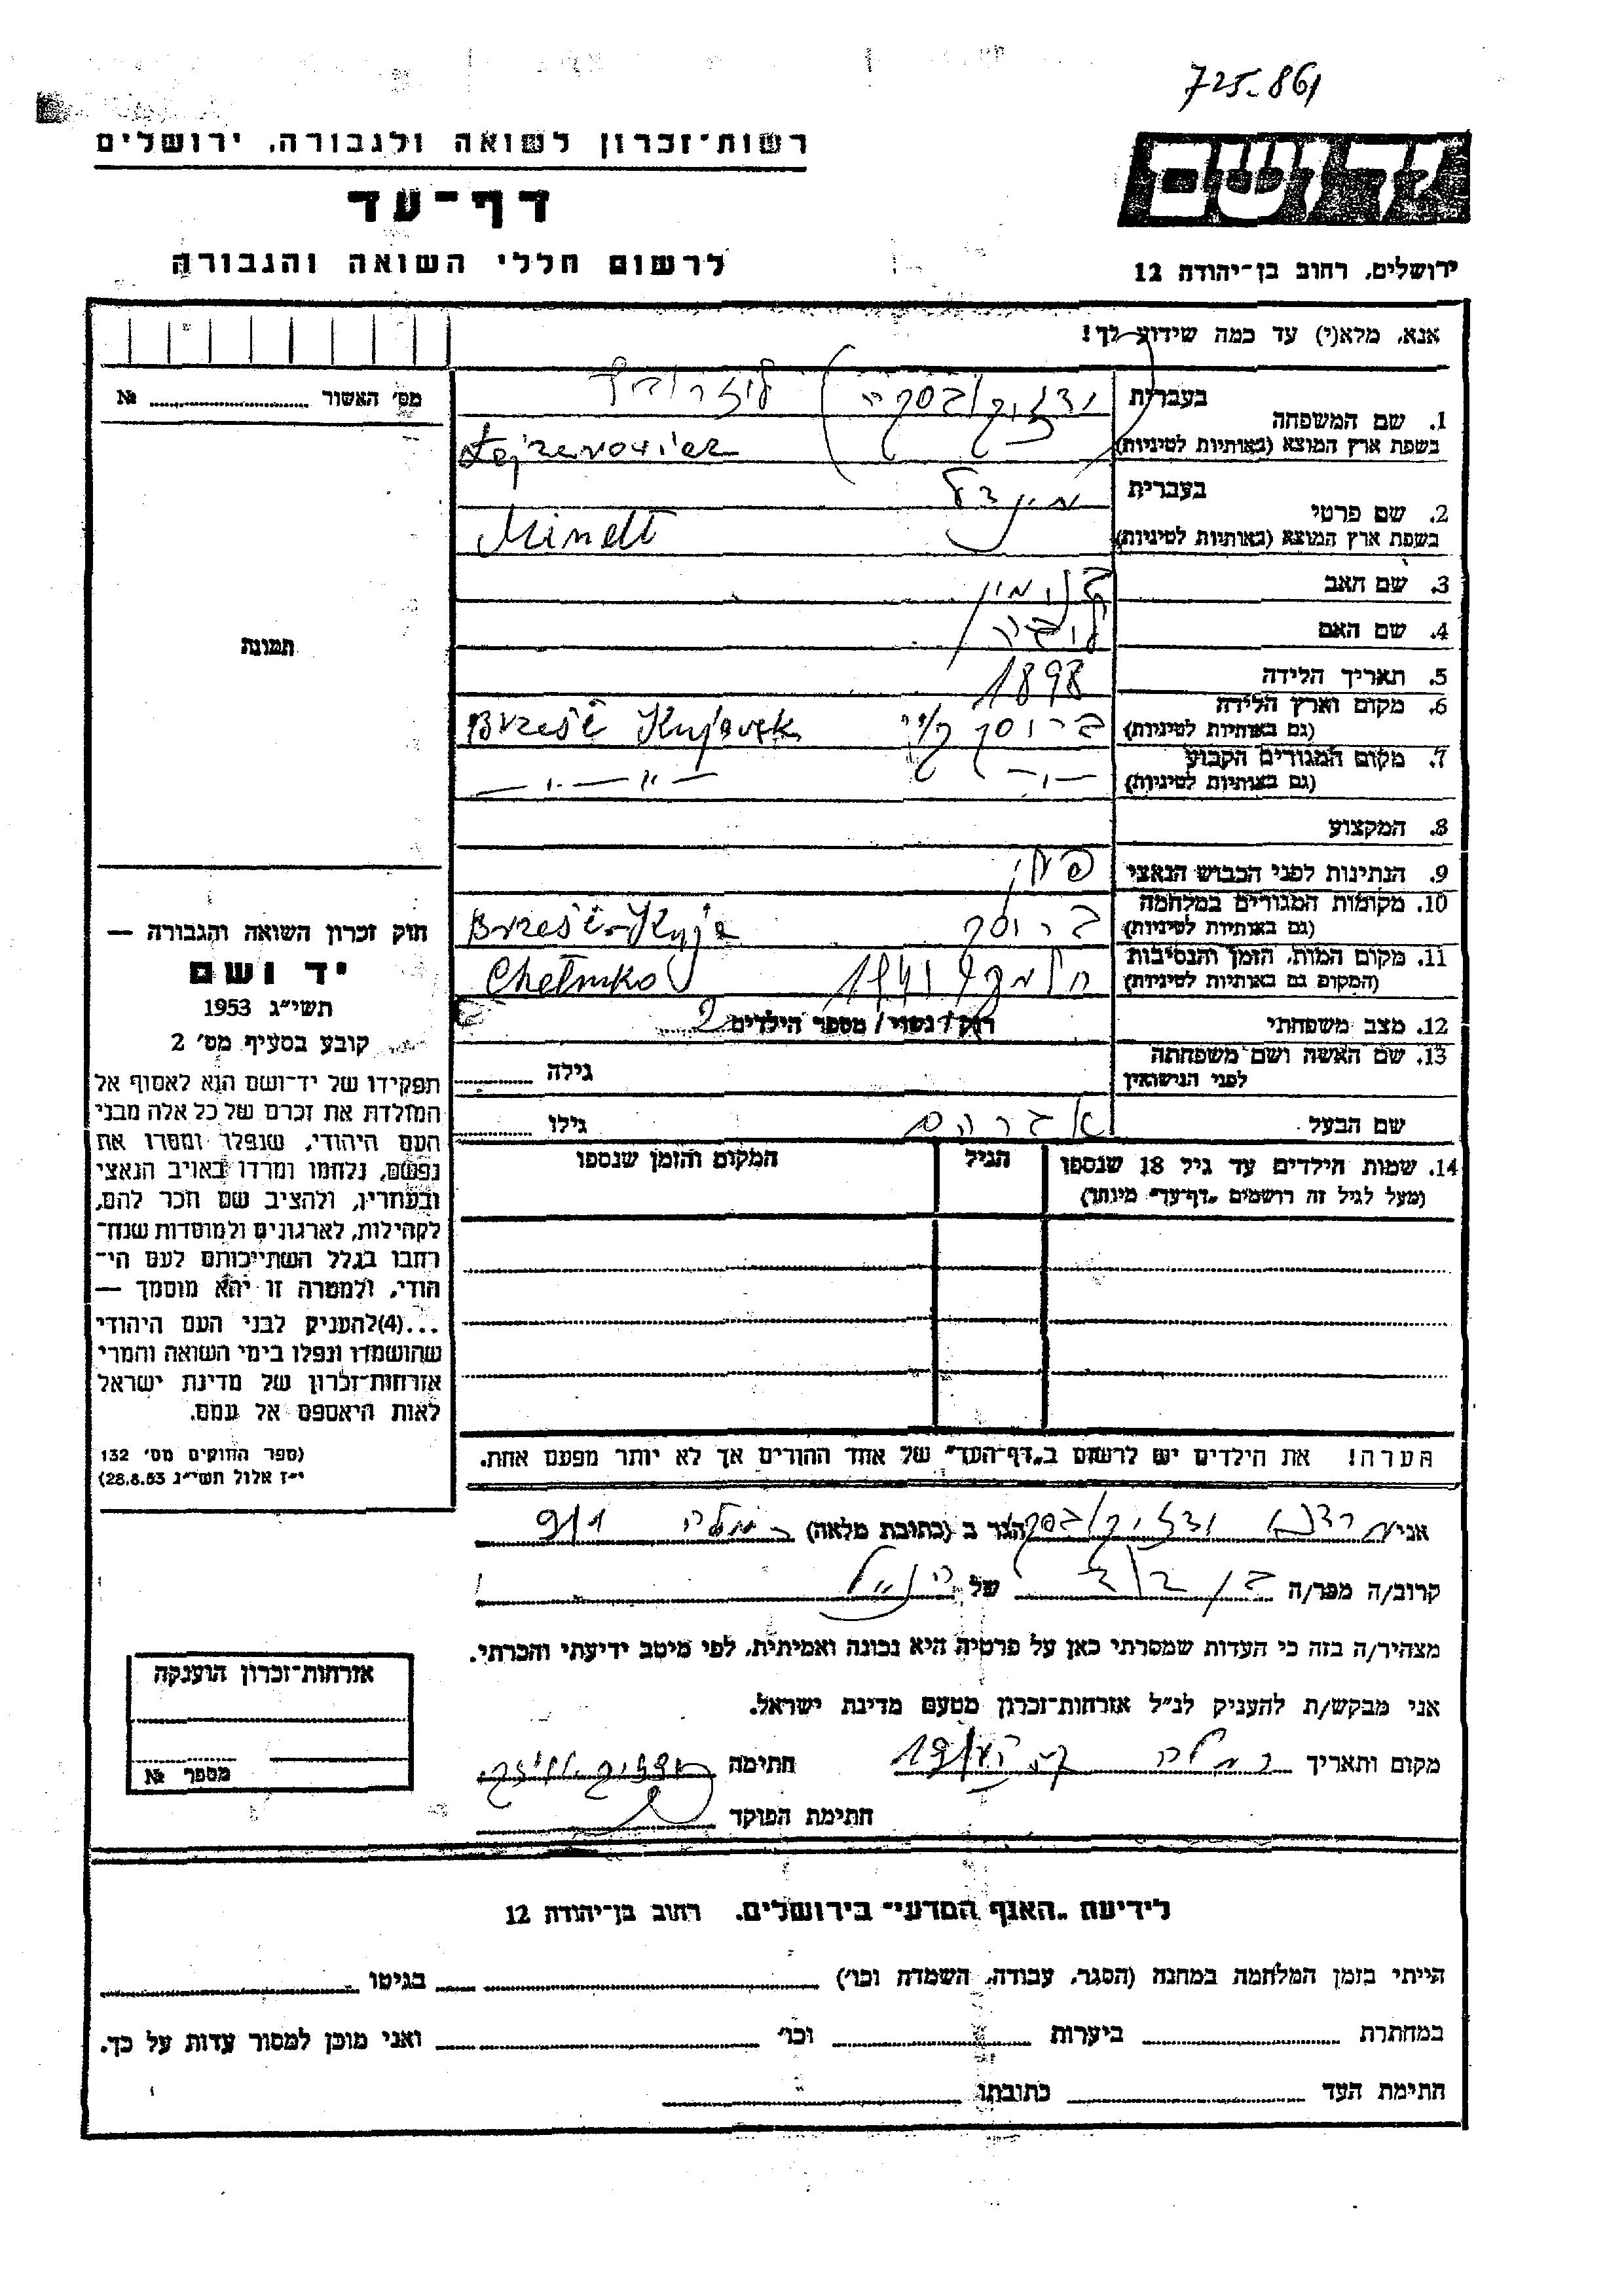 725-861
רשות־זכרון לשואה ולגבורה, ירושלים
דף־עד
לרשום חללי השואה והגבורה
יד ושם
ירושלים, רחוב בן־יהודה 12
אנא, מלא(י) עד כמה שידוע לך!
מס' האשור №
תמונה
1. שם המשפחה
בעברית
בשפת ארץ המוצא (באותיות לטיניות)
2. שם פרטי
בעברית
בשפת ארץ המוצא (באותיות לטיניות)
3. שם האב בנימין
4. שם האם
5. תאריך הלידה 1898
6. מקום וארץ הלידה
(גם באותיות לטיניות)
7. מקום המגורים הקבוע
(גם באותיות לטיניות)
8. המקצוע
9. הנתינות לפני הכבוש הנאצי
10. מקומות המגורים במלחמה
(גם באותיות לטיניות) בריסק Brześć-Kuja
11. מקום המות, הזמן והנסיבות
(המקום גם באותיות לטיניות) 1941
12. מצב משפחתי רווק / נשוי / מספר הילדים 2
13. שם האשה ושם משפחתה
לפני הנישואין גילה
שם הבעל אברהם גילו
14. שמות הילדים עד גיל 18 שנספו
(מעל לגיל זה רושמים „דף־עד" מיוחד)
הגיל
המקום והזמן שנספו
הערה! את הילדים יש לרשום ב„דף־העד" של אחד ההורים אך לא יותר מפעם אחת.
חוק זכרון השואה והגבורה —
יד ושם
תשי"ג 1953
קובע בסעיף מס' 2
תפקידו של יד־ושם הוא לאסוף אל
המולדת את זכרם של כל אלה מבני
העם היהודי, שנפלו ומסרו את
נפשם, נלחמו ומרדו באויב הנאצי
ובעוזריו, ולהציב שם וזכר להם,
לקהילות, לארגונים ולמוסדות שנח־
רבו בגלל השתייכותם לעם הי־
הודי, ולמטרה זו יהא מוסמך —
...(4)להעניק לבני העם היהודי
שהושמדו ונפלו בימי השואה והמרי
אזרחות־זכרון של מדינת ישראל
לאות היאספם אל עמם.
(ספר החוקים מס' 132
י"ז אלול תשי"ג 28.8.53)
אני הגר ב (כתובת מלאה) רמלה
קרוב/ה מפר/ה של
מצהיר/ה בזה כי העדות שמסרתי כאן על פרטיה היא נכונה ואמיתית, לפי מיטב ידיעתי והכרתי.
אני מבקש/ת להעניק לנ"ל אזרחות־זכרון מטעם מדינת ישראל.
מקום ותאריך רמלה חתימה
חתימת הפוקד
אזרחות־זכרון הוענקה
מספר №
לידיעת „האגף המדעי" בירושלים, רחוב בן־יהודה 12
הייתי בזמן המלחמה במחנה (הסגר, עבודה, השמדה וכו') בגיטו
במחתרת ביערות וכו' ואני מוכן למסור עדות על כך.
חתימת העד כתובתו